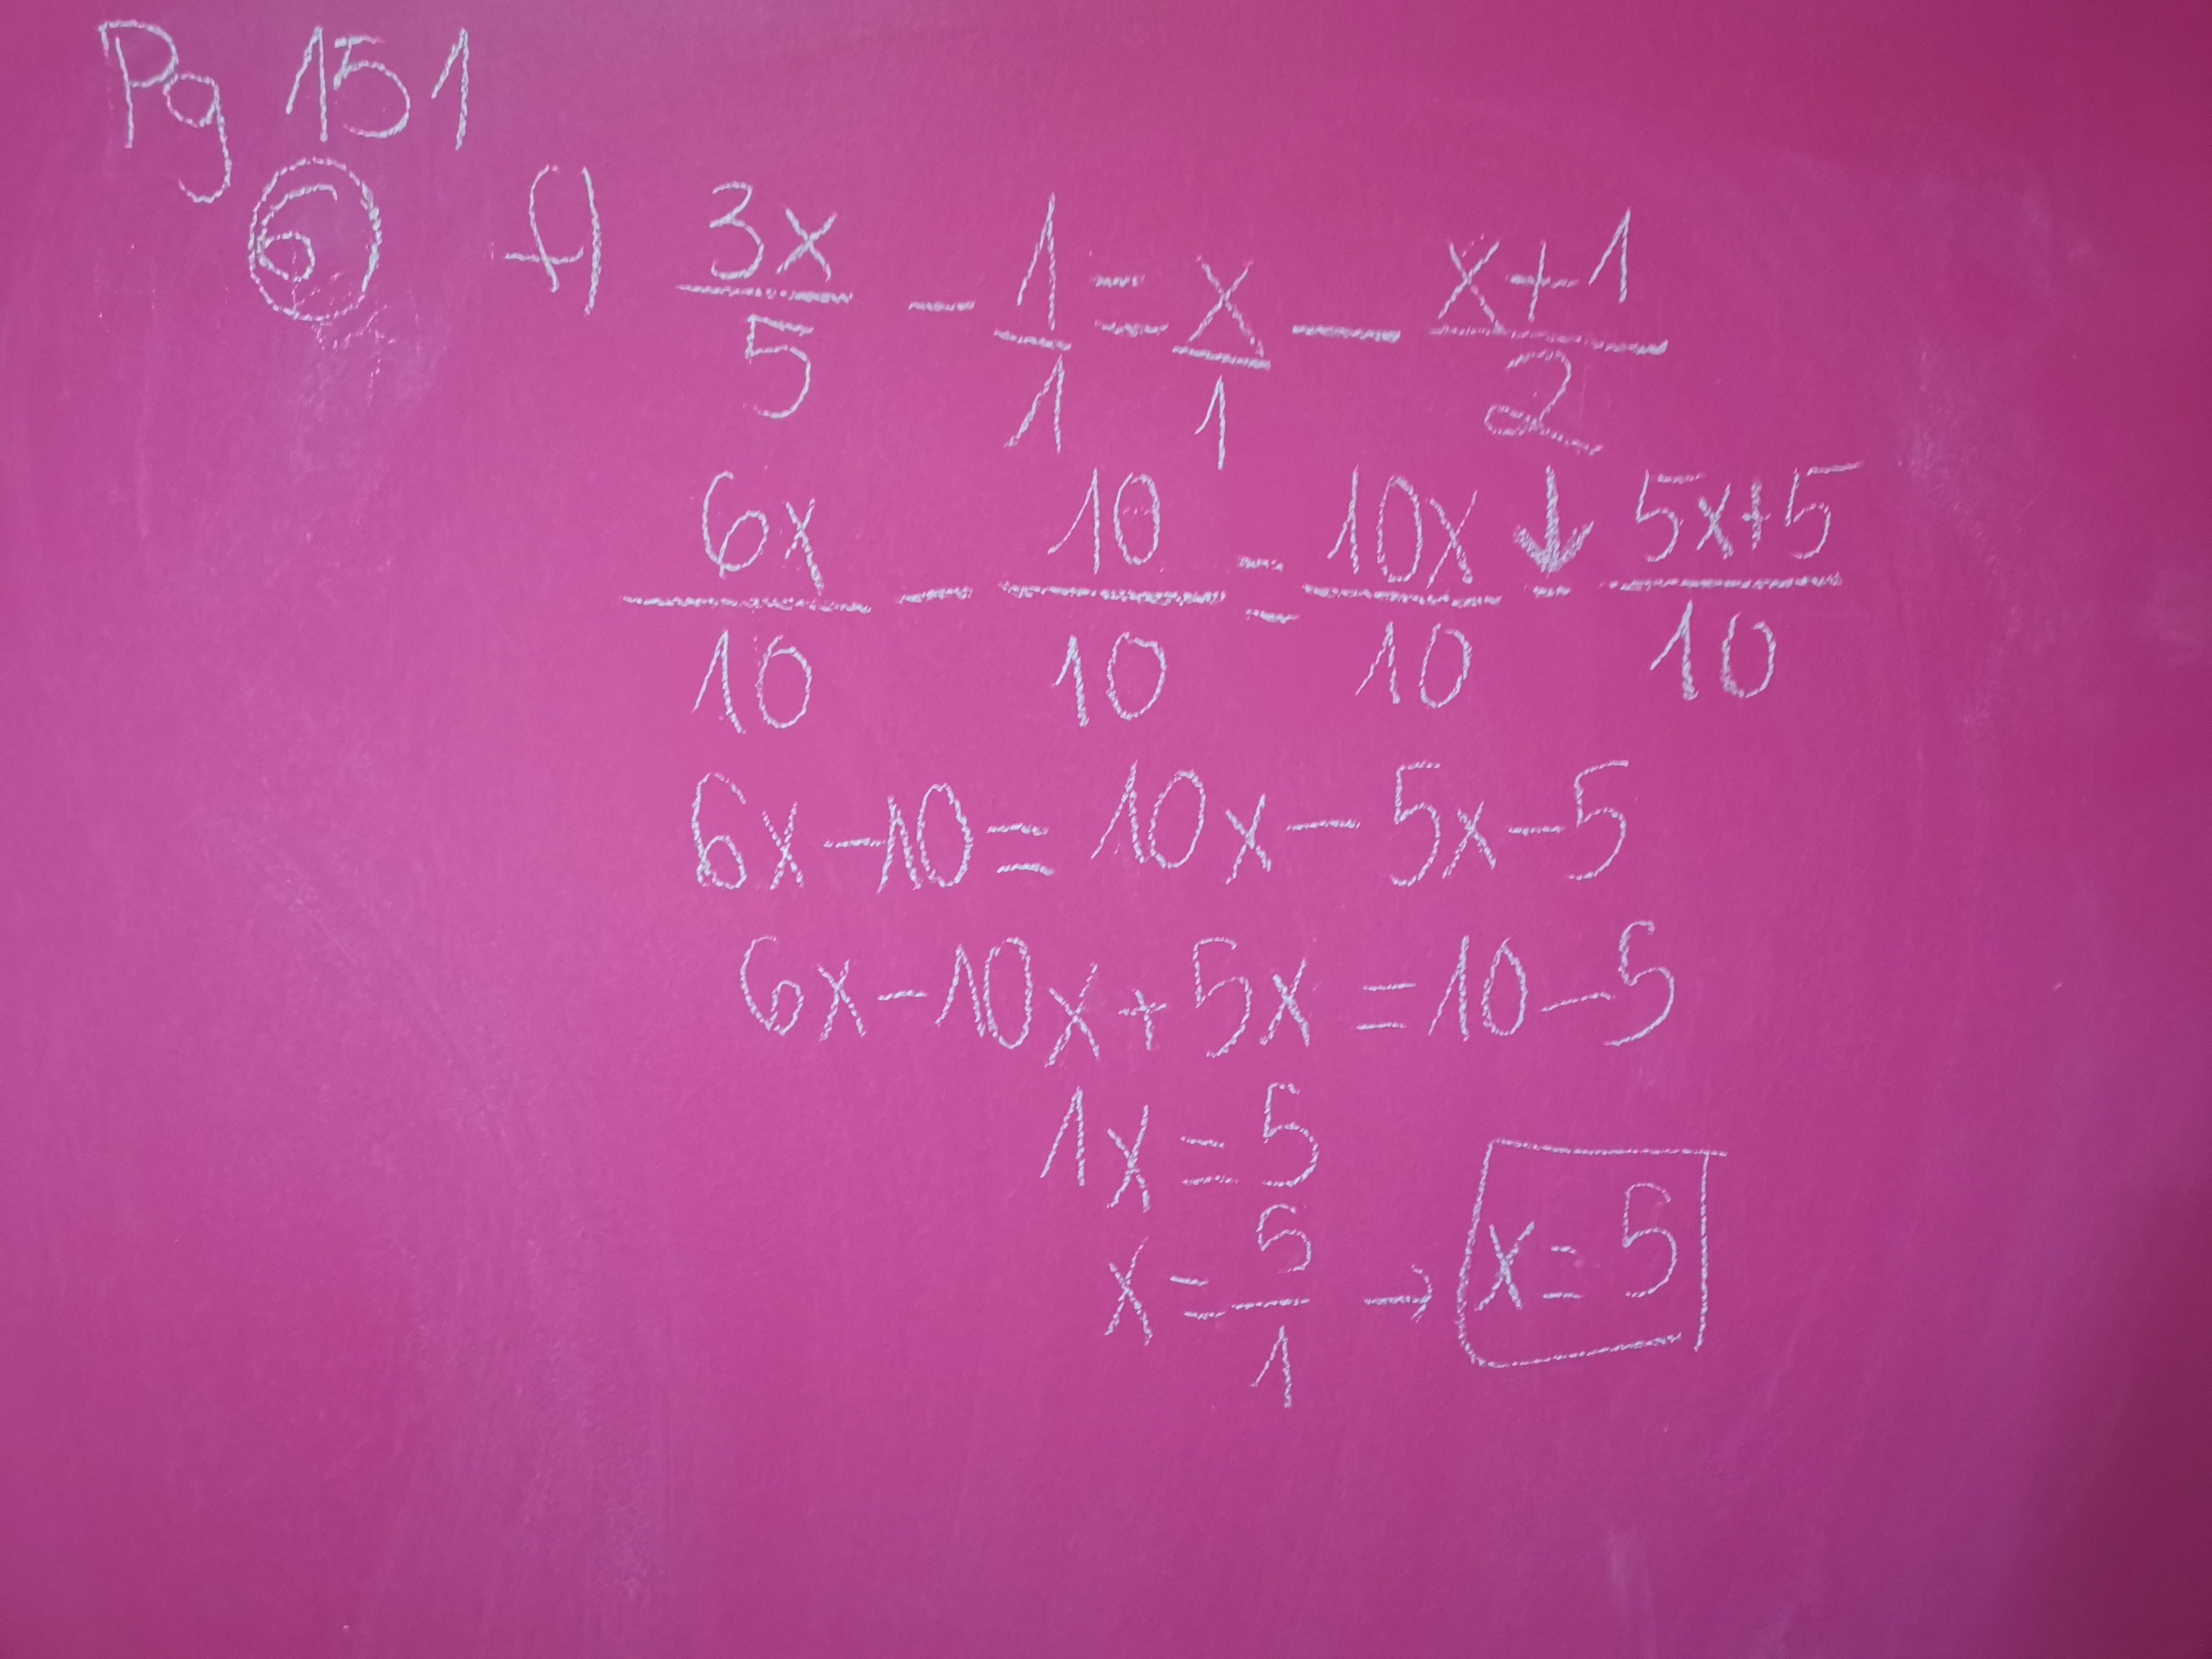 Pg 151
6 f) 3x/5 - 1/1 = x/1 - x+1/2
6x/10 - 10/10 = 10x/10 ↓ - 5x+5/10
6x-10=10x-5x-5
6x-10x+5x=10-5
1x=5
x=5/1 → x=5